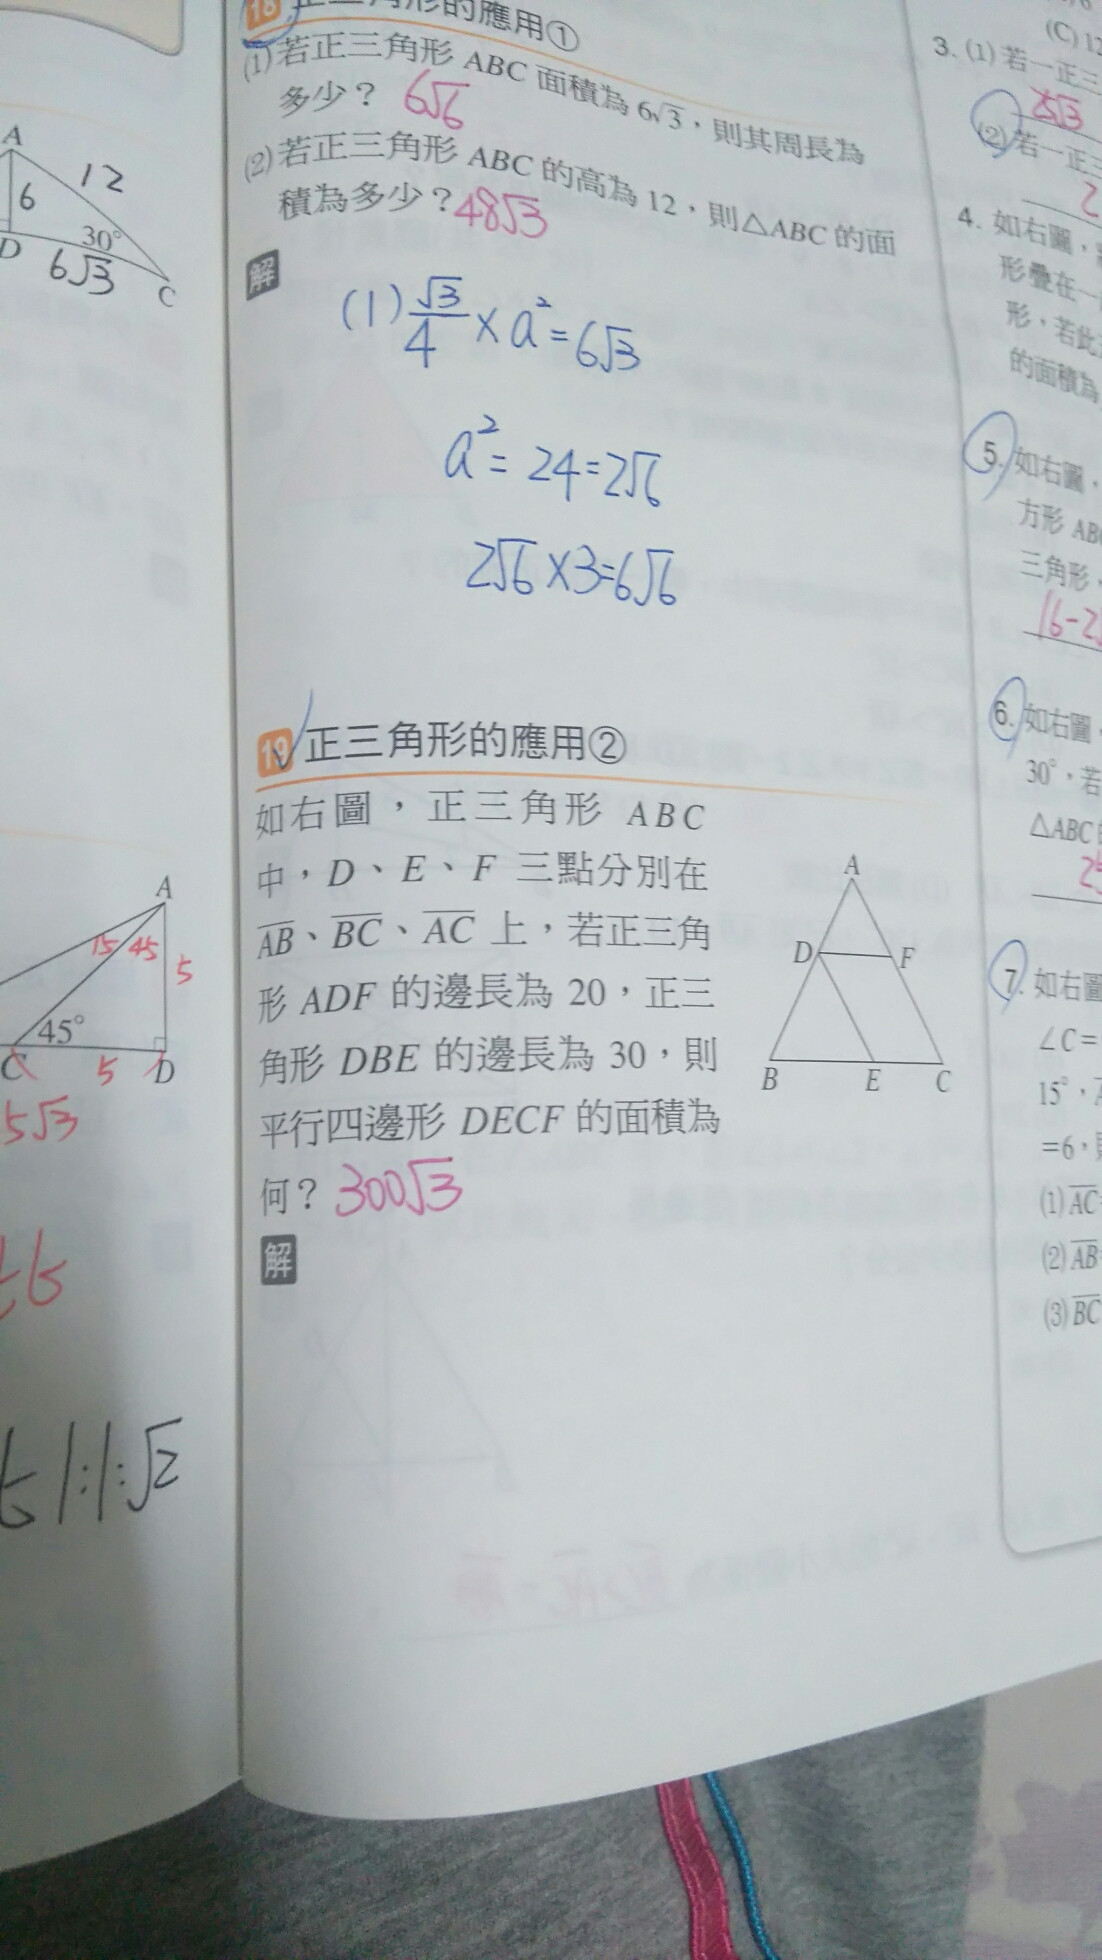 A
12
6
30°
D
6√3
C
A
15
45
5
45°
C
5
D
5√3
1:1:√2
18 正三角形的應用①
(1)若正三角形 ABC 面積為 6√3，則其周長為
多少？ 6√6
(2)若正三角形 ABC 的高為 12，則△ABC 的面
積為多少？48√3
解
(1) √3/4 × a² = 6√3
a² = 24 = 2√6
2√6 × 3 = 6√6
19 正三角形的應用②
如右圖，正三角形 ABC
中，D、E、F 三點分別在
AB、BC、AC 上，若正三角
形 ADF 的邊長為 20，正三
角形 DBE 的邊長為 30，則
平行四邊形 DECF 的面積為
何？ 300√3
解
A
D
F
B
E
C
(C) 12
3. (1) 若一正三
25√3
(2) 若一正三
2
4. 如右圖，
形疊在一
形，若此
的面積為
5. 如右圖，
方形 AB
三角形，
16-2
6. 如右圖
30°，若
△ABC
2
7. 如右圖
∠C=
15°，
=6，
(1) AC
(2) AB
(3) BC